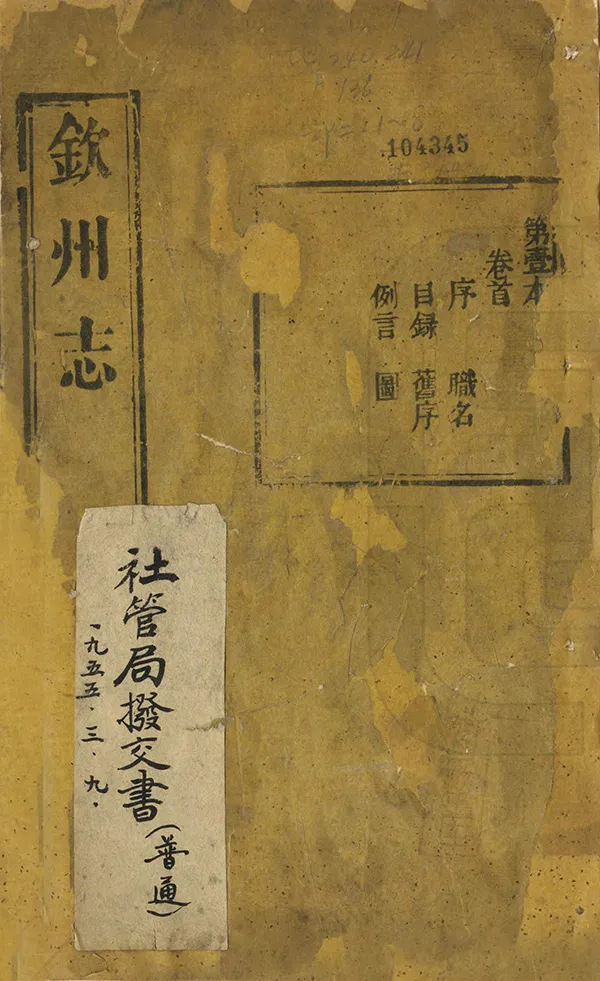 104345
第壹本
卷首
序 職名
目録 舊序
例言 圖
欽州志
社管局撥交書(普通)
一九五五.三.九.